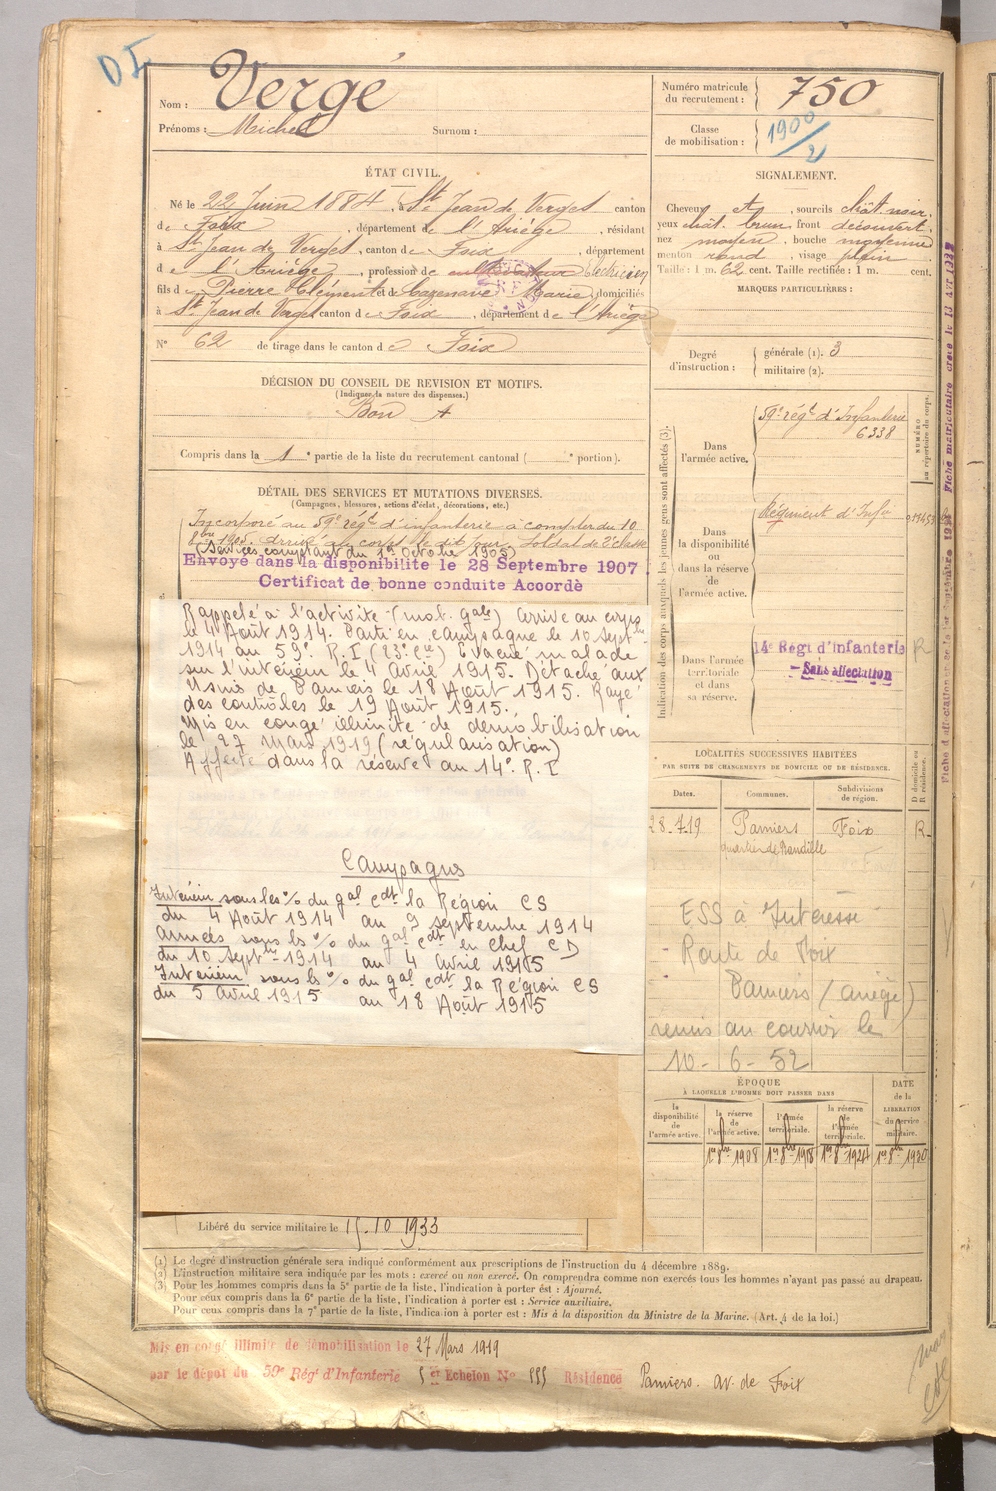 DI
Nom : Vergé
Prénoms : Michel Surnom :
Numéro matricule
du recrutement : 750
Classe
de mobilisation : 1900/2
ÉTAT CIVIL.
Né le 22 Juin 1884, à St Jean de Verges canton
de Foix, département de l'Ariège, résidant
à St Jean de Verges, canton de Foix, département
de l'Ariège, profession de cultivateur électricien
fils de Pierre Clément et de Cazenave Marie, domiciliés
à St Jean de Verges canton de Foix, département de l'Ariège
N° 62 de tirage dans le canton de Foix
SIGNALEMENT.
Cheveux et, sourcils chât noir.
yeux chât. brun, front découvert,
nez moyen, bouche moyenne
menton rond, visage plein
Taille : 1 m. 62 cent. Taille rectifiée : 1 m. cent.
MARQUES PARTICULIÈRES :
DÉCISION DU CONSEIL DE REVISION ET MOTIFS.
(Indiquer la nature des dispenses.)
Bon A
Compris dans la 1e partie de la liste du recrutement cantonal ( e portion).
Degré
d'instruction :
générale (1). 3
militaire (2).
DÉTAIL DES SERVICES ET MUTATIONS DIVERSES.
(Campagnes, blessures, actions d'éclat, décorations, etc.)
Incorporé au 59e régt d'infanterie à compter du 10
8bre 1905. arrivé au corps le dit jour, soldat de 2e classe
(Services comptant du 1er Octobre 1905)
Envoyé dans la disponibilite le 28 Septembre 1907
Certificat de bonne conduite Acoordè
Rappelé à l'activité (mob. gale) Arrive au corps
le 4 Août 1914. Parti en campagne le 10 septbre
1914 au 59e R.I (23e Cie) Evacué malade
sur l'intérieur le 4 Avril 1915. Détaché aux
Usines de Pamiers le 18 Août 1915. Rayé
des contrôles le 19 Août 1915.
Mis en congé illimité de démobilisation
le 27 Mars 1919 (régularisation)
Affecté dans la réserve au 14e R.I
Campagnes
Intérieur sous les % du gal cdt la Région CS
du 4 Août 1914 au 9 septembre 1914
Armées sous ls % du gal cdt en chef CD
du 10 septbre 1914 au 4 Avril 1915
Intérieur sous ls % du gal cdt la Région CS
du 5 Avril 1915 au 18 Août 1915
Libéré du service militaire le 15.10 1933
Indication des corps auxquels les jeunes gens sont affectés (3).
Dans
l'armée active.
59e régt d'Infanterie
6338
NUMÉRO
au répertoire du corps.
Dans
la disponibilité
ou
dans la réserve
de
l'armée active.
Régiment d'Infie
Dans l'armée
territoriale
et dans
sa réserve.
14e Régt d'Infanterie R
Sans affectation
LOCALITÉS SUCCESSIVES HABITÉES
PAR SUITE DE CHANGEMENTS DE DOMICILE OU DE RÉSIDENCE.
Dates. Communes. Subdivisions
de région.
D domicile ou
R résidence.
28-7-19 Pamiers Foix R-
ESS à Intéressé
- Route de Foix
Pamiers (Ariège)
remis au courrier le
10-6-52
ÉPOQUE
À LAQUELLE L'HOMME DOIT PASSER DANS
DATE
de la
LIBÉRATION
du service
militaire.
la
disponibilité
de
l'armée active.
la réserve
de
l'armée active.
l'armée
territoriale.
la réserve
de
l'armée
territoriale.
1er 8bre 1908 1er 8bre 1918 1er 8bre 1924 1er 8bre 1930
(1) Le degré d'instruction générale sera indiqué conformément aux prescriptions de l'instruction du 4 décembre 1889.
(2) L'instruction militaire sera indiquée par les mots : exercé ou non exercé. On comprendra comme non exercés tous les hommes n'ayant pas passé au drapeau.
(3) Pour les hommes compris dans la 5e partie de la liste, l'indication à porter est : Ajourné.
Pour ceux compris dans la 6e partie de la liste, l'indication à porter est : Service auxiliaire.
Pour ceux compris dans la 7e partie de la liste, l'indication à porter est : Mis à la disposition du Ministre de la Marine. (Art. 4 de la loi.)
Mis en congé illimité de démobilisation le 27 Mars 1919
par le dépot du 59e Régt d'Infanterie 5 et Echelon N° 555 Résidence Pamiers. av. de Foix